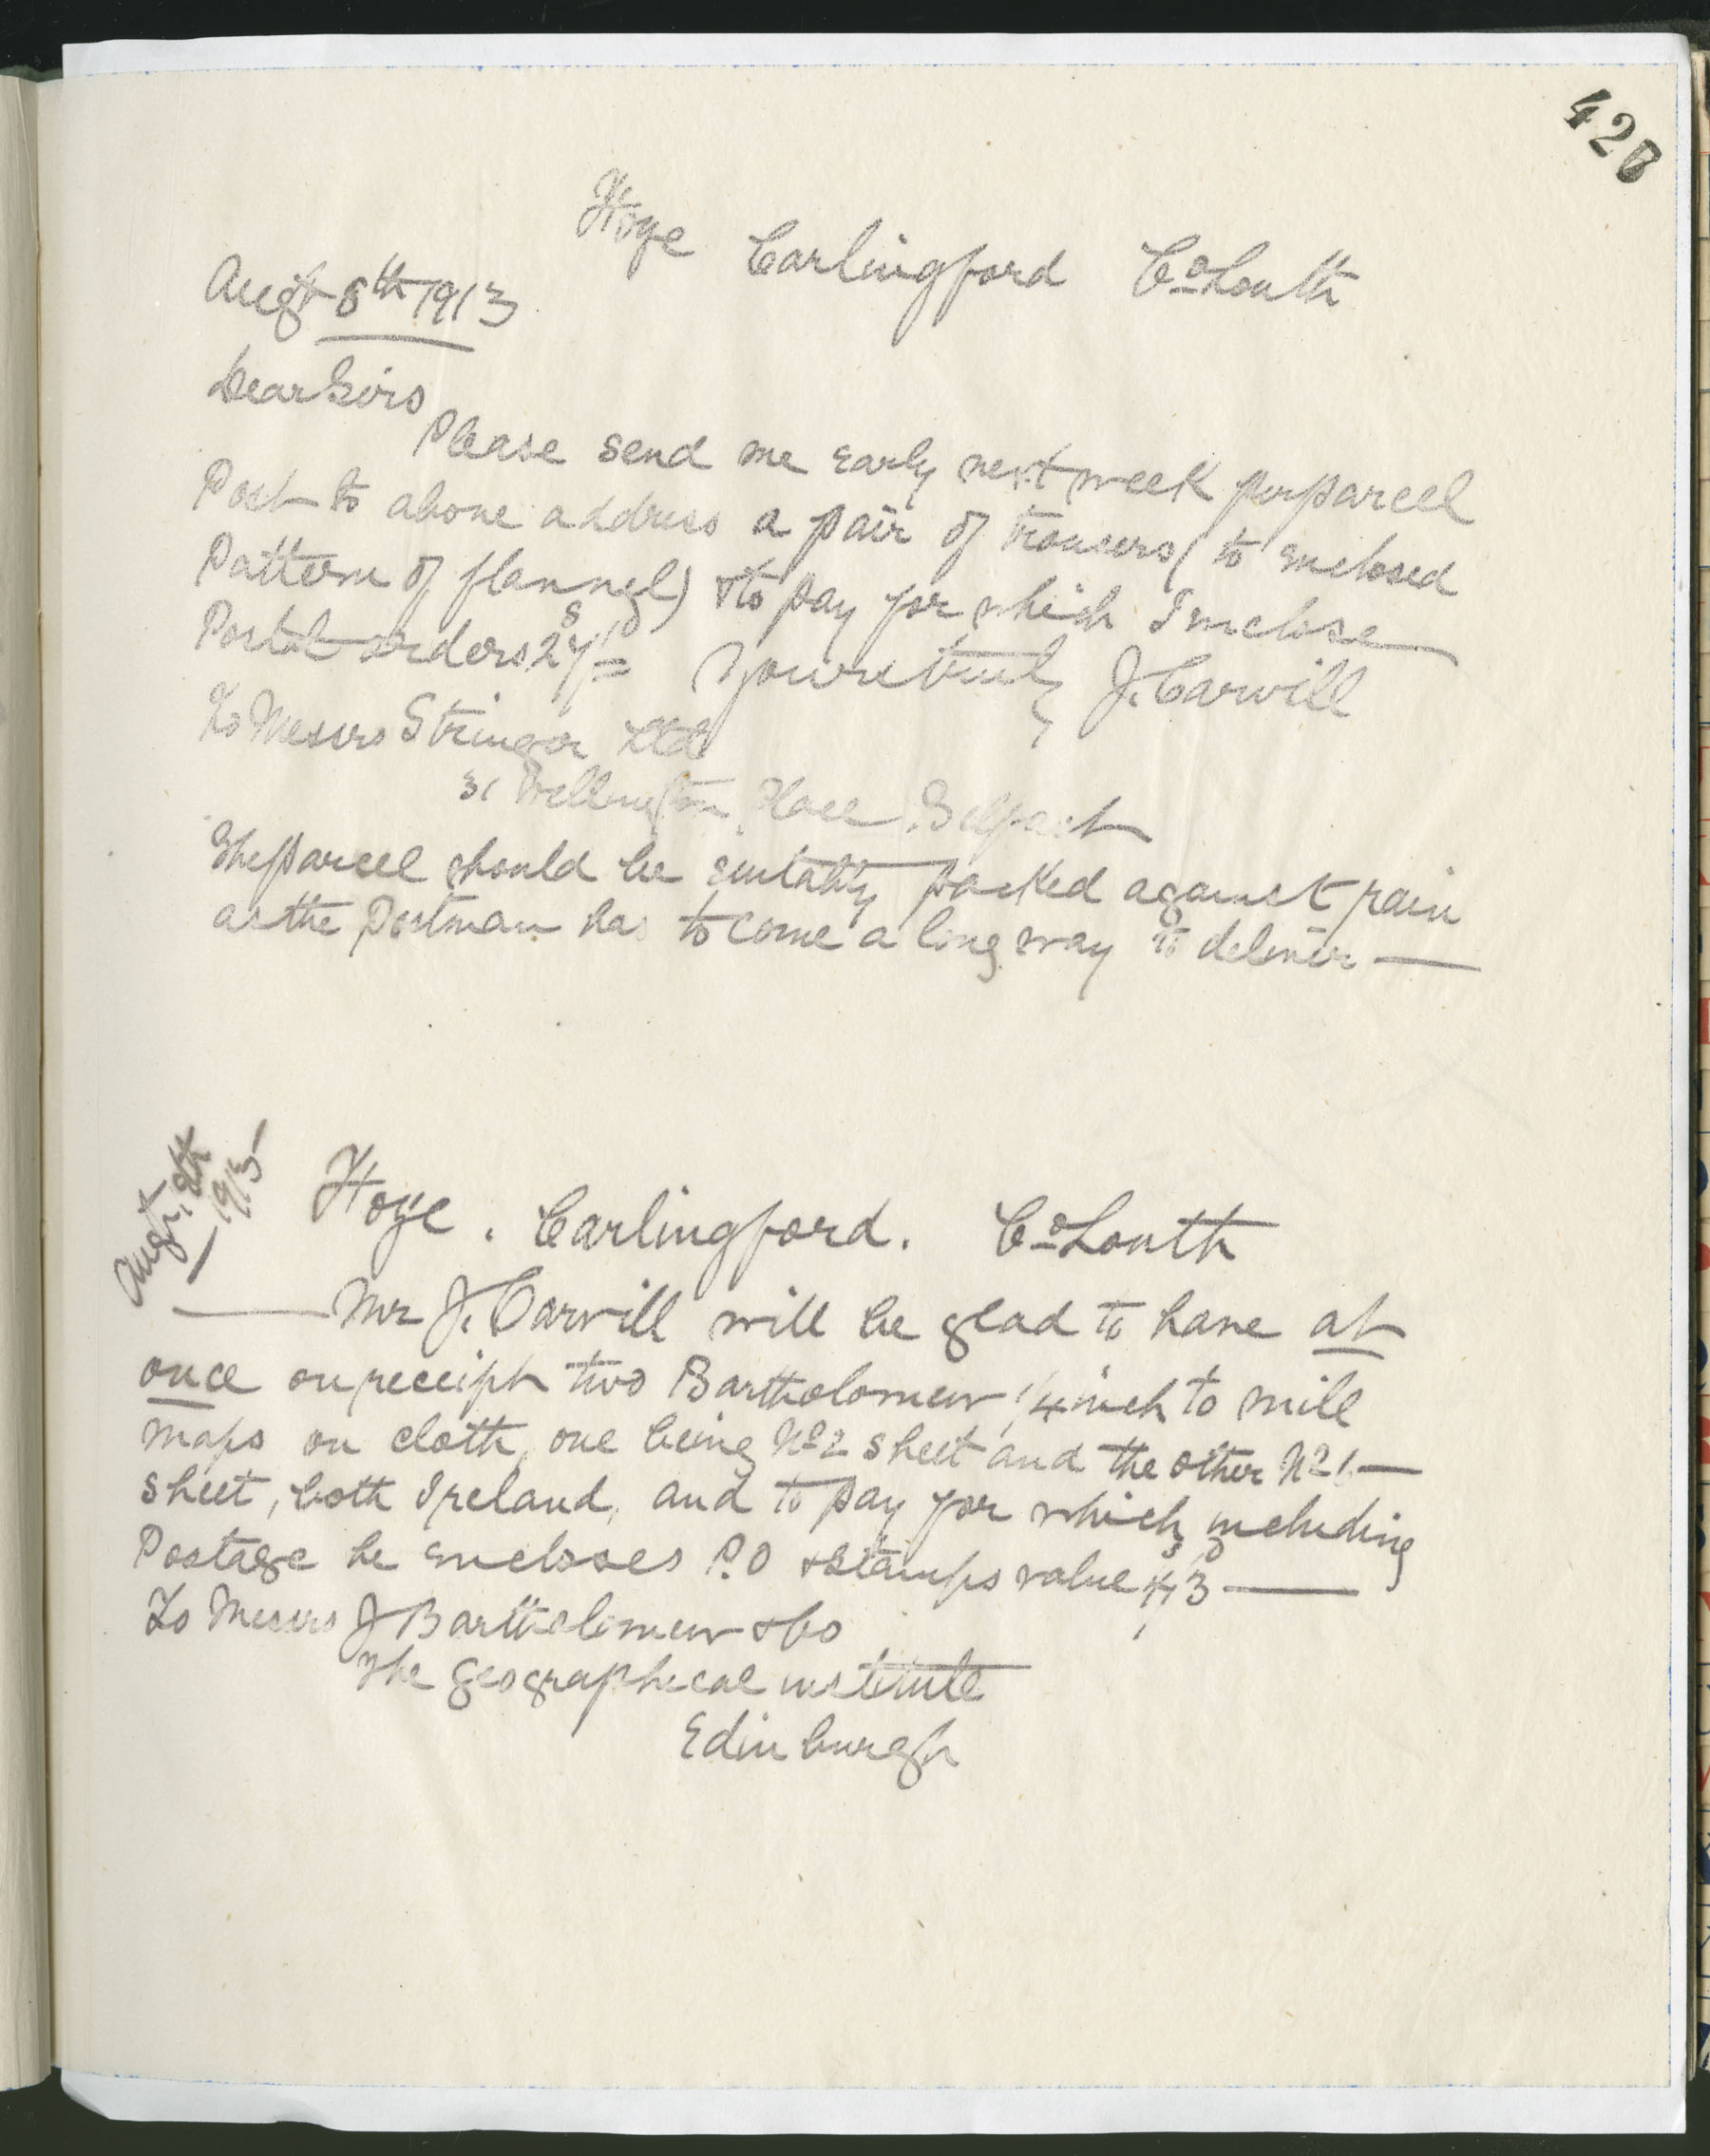 428
Hoye Carlingford Co Louth
Augt 8th 1913
Dear Sirs
Please send me early next week per parcel
Post to above address a pair of trousers (to enclosed
Pattern of flannel) & to pay for which I enclose
Postal orders 27s/= Yours truly J. Carvill
To Messrs Stringer Ltd
31 Wellington Place Belfast
The parcel should be suitably packed against rain
as the Postman has to come a long way to deliver —
Augt. 8th 1913
Hoye. Carlingford. Co Louth
— Mr J. Carvill will be glad to have at
once on receipt two Bartholomew 1/4 inch to mile
maps on cloth, one being No 2 sheet and the other No 1. —
sheet, both Ireland, and to pay for which, including
Postage he encloses P.O & stamps value 4s/3d —
To Messrs J Bartholomew & Co
The geographical institute
Edinburgh